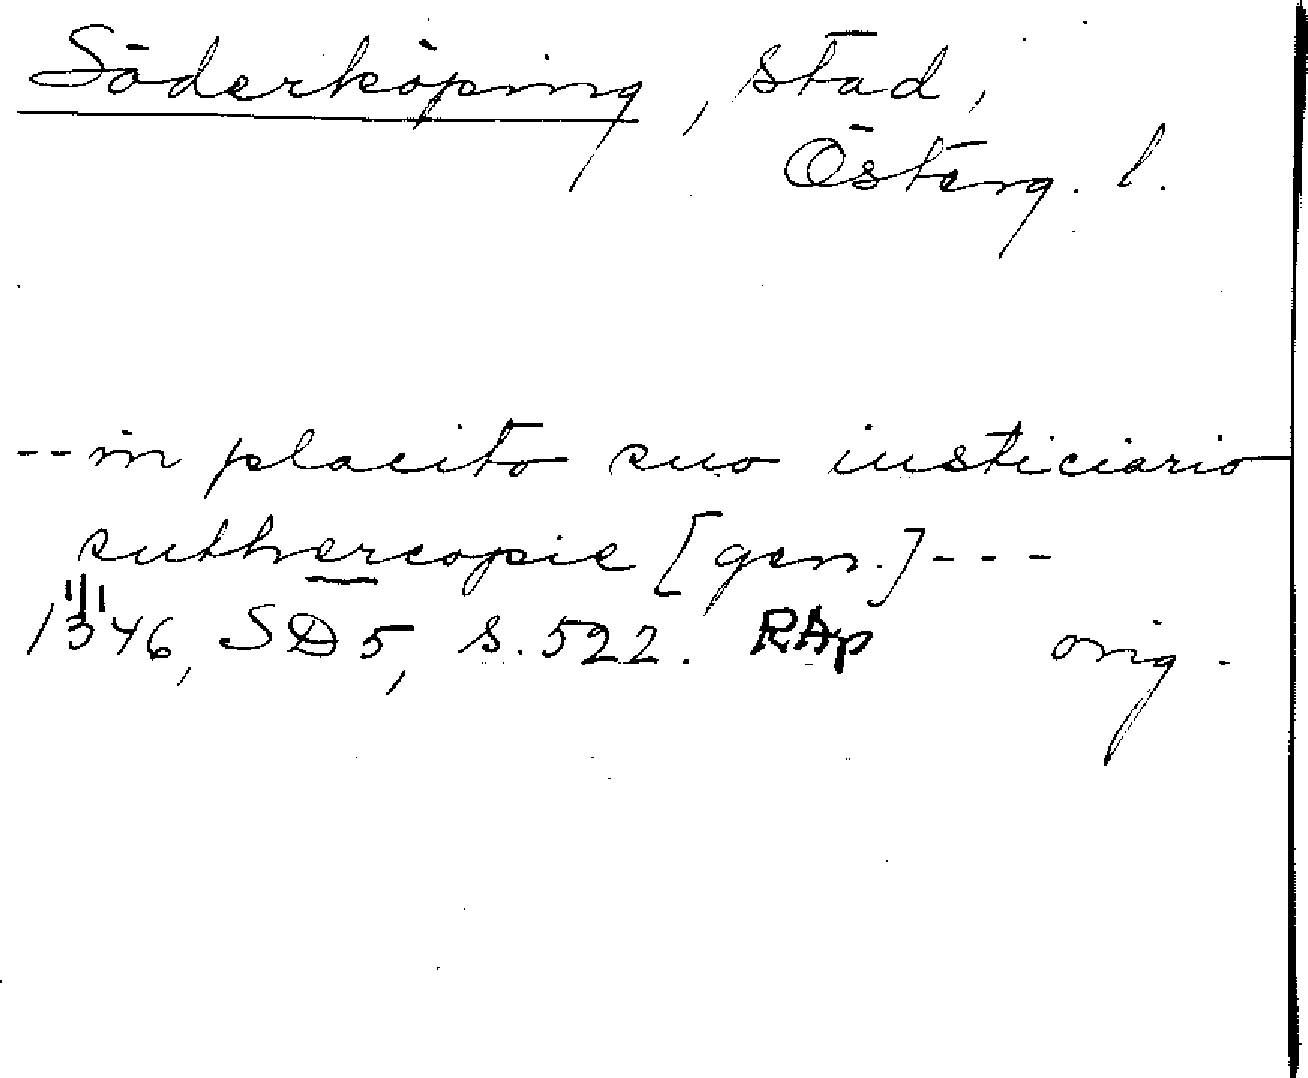 Söderköping, stad,
Österg. l.
-- in placito suo iusticiario
suthercopie [gen.] - - -
1346, SD 5, s. 522. RAp orig.